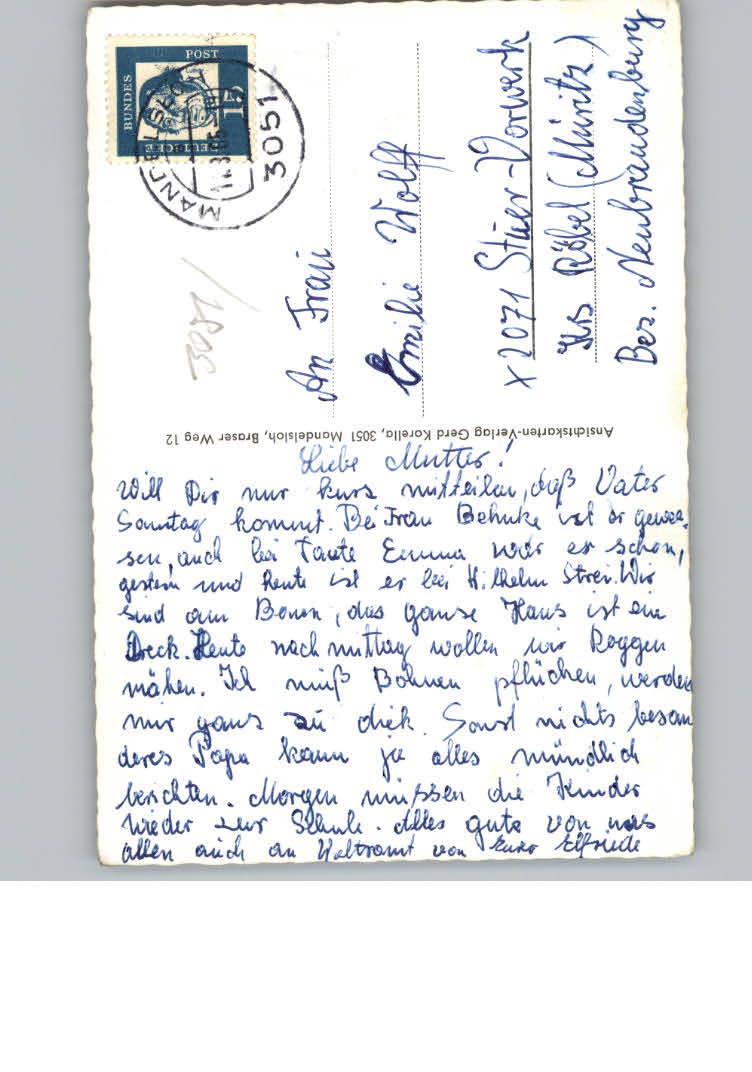 DEUTSCHE
BUNDES
POST
15
3051
3051
An Frau
Emilie Wolff
X 2071 Stuer-Vorwerk
Krs Röbel (Müritz)
Bez. Neubrandenburg
Ansichtskarten-Verlag Gerd Korella, 3051 Mandelsloh, Braser Weg 12
Liebe Mutter!
Will Dir nur kurz mitteilen, daß Vater
Sonntag kommt. Bei Frau Behnke ist er gewe-
sen, auch bei Tante Emma war er schon,
gestern und heute ist er bei Wilhelm Strei. Wir
sind am Bauen, das ganze Haus ist ein
Dreck. Heute nachmittag wollen wir Roggen
mähen. Ich muß Bohnen pflücken, werden
nur ganz zu dick. Sonst nichts beson
deres Papa kann ja alles mündlich
berichten. Morgen müssen die Kinder
wieder zur Schule. Alles gute von uns
allen auch an von Eurer Elfriede